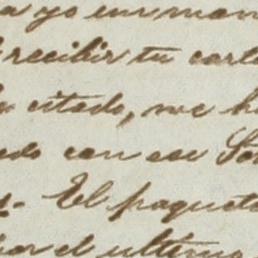 a yo en man
recibir tu carta
citado, me h
edo con ese So
y. El paquete
por el ultimo